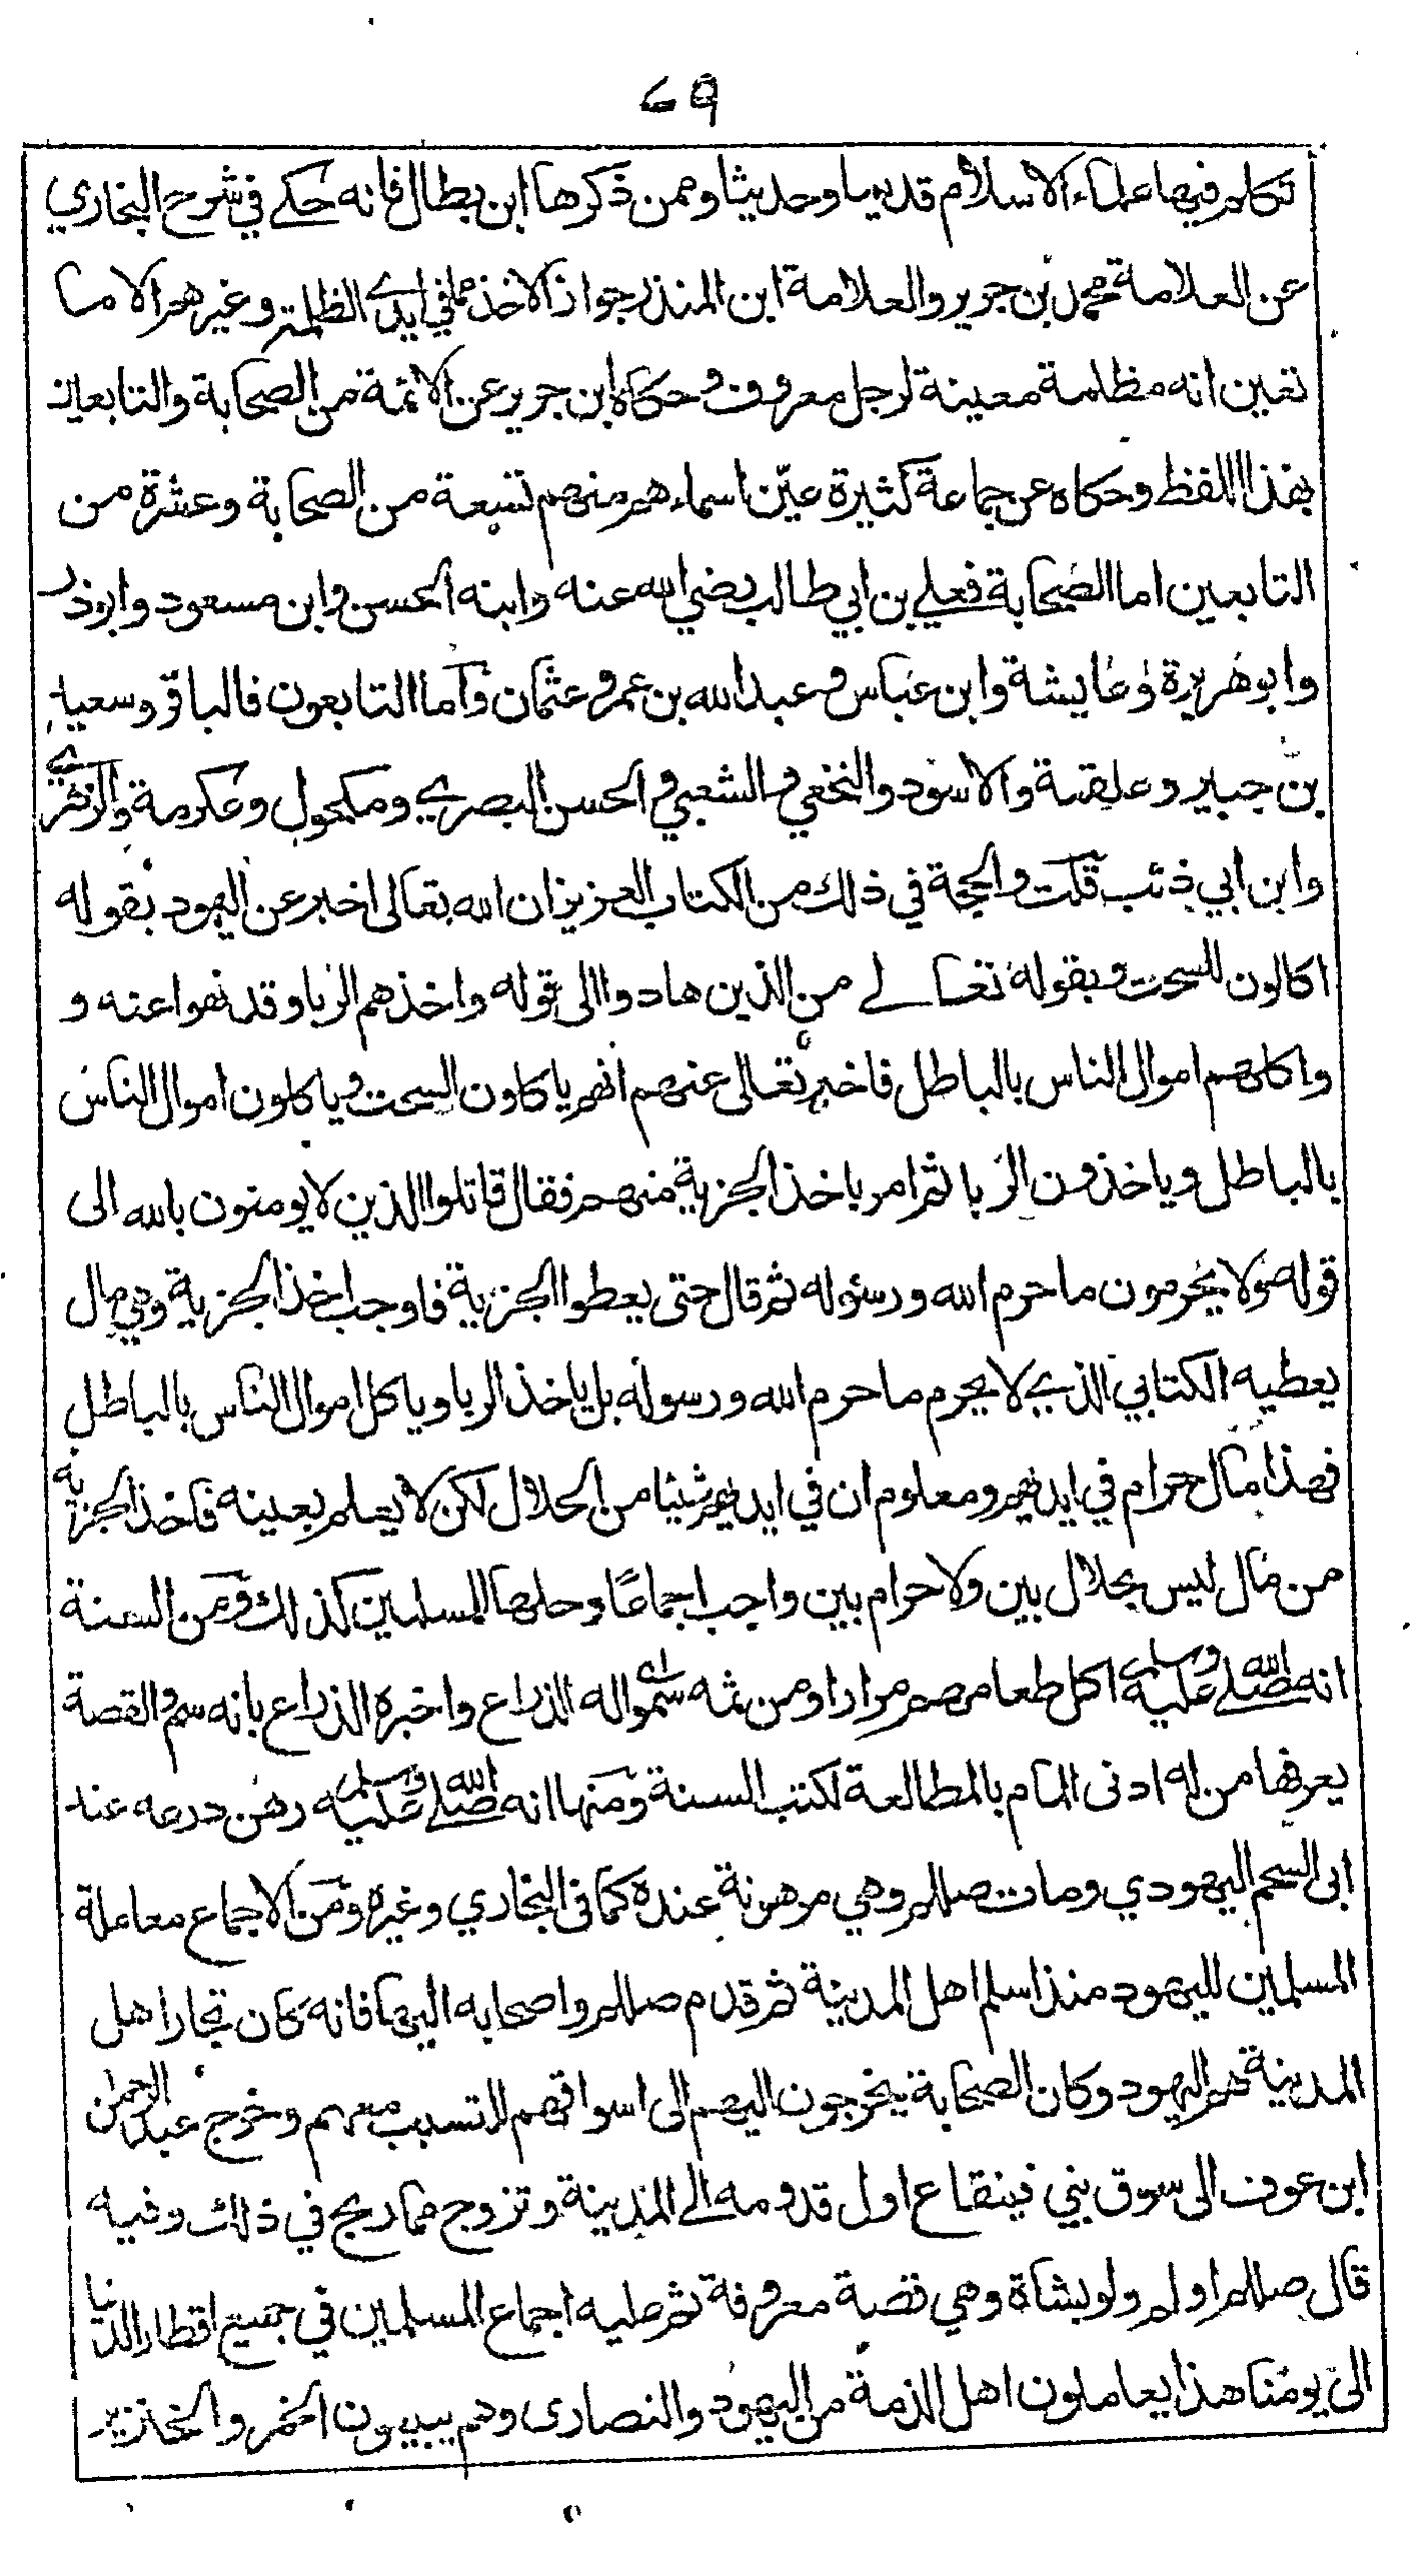 69
تكلم فيها علماء الاسلام قديما وحديثا وممن ذكرها ابن بطال فانه حكے في شرح البخاري
عن العلامة محمد بن جرير والعلامة ابن المنذر جواز الاخذ مما في ايدے الظلمة وغيرهم الا ما
تعين انه مظلمة معينة لرجل معروف وحكاه ابن جرير عن الائمة من الصحابة والتابعين
بهذا اللفظ وحكاه عن جماعة كثيرة عيّن اسماءهم منهم تسعة من الصحابة وعشرة من
التابعين اما الصحابة فعلے بن ابي طالب رضي الله عنه وابنه الحسن وابن مسعود وابوذر
وابو هريرة وعايشة وابن عباس وعبد الله بن عمر وعثمان واما التابعون فالباقر وسعيد
بن جبير وعلقمة والاسود والنخعي والشعبي والحسن البصرے ومكحول وعكرمة والزهرے
وابن ابي ذئب قلت والحجة في ذلك من الكتاب العزيز ان الله تعالى اخبر عن اليهود بقوله
اكالون للسحت وبقوله تعالے من الذين هادوا الى قوله واخذهم الربا وقد نهوا عنه و
واكلهم اموال الناس بالباطل فاخبر تعالى عنهم انهم ياكلون السحت وياكلون اموال الناس
بالباطل وياخذون الربا ثم امر باخذ الجزية منهم فقال قاتلوا الذين لا يومنون بالله الى
قوله ولا يحرمون ما حرم الله ورسوله ثم قال حتى يعطوا الجزية فاوجب اخذ الجزية وهي مال
يعطيه الكتابي الذے لا يحرم ما حرم الله ورسوله بل ياخذ الربا وياكل اموال الناس بالباطل
فهذا مال حرام في ايديهم ومعلوم ان في ايديهم شيئا من الحلال لكن لا يعلم بعينه فاخذ الجزية
من مال ليس بحلال بين ولا حرام بين واجب اجماعًا وحلها للمسلمين كذلك ومن السنة
انه صلے الله عليه وسلم اكل طعامهم مرارا ومن ثمه سموا له اے الذراع واخبره الذراع بانه سم والقصة
يعرفها من له ادنى المام بالمطالعة لكتب السنة ومنها انه صلے الله عليه وسلم رهن درعه عند
ابى السحم اليهودي ومات صللم وهي مرهونة عنده كما فى البخاري وغيره ومن الاجماع معاملة
المسلمين لليهود منذ اسلم اهل المدينة ثم قدم صللم واصحابه اليها فانه كان تجار اهل
المدينة هم اليهود وكان الصحابة يخرجون اليهم الى اسواقهم للتسبب معهم وخرج عبد الرحمن
ابن عوف الى سوق بني قينقاع اول قدومه الے المدينة وتزوج مما ربح في ذلك وفيه
قال صللم اولم ولو بشاة وهي قصة معروفة ثم عليه اجماع المسلمين في جميع اقطار الدنيا
الى يومنا هذا يعاملون اهل الذمة من اليهود والنصارى وهم يبيعون الخمر والخنزير